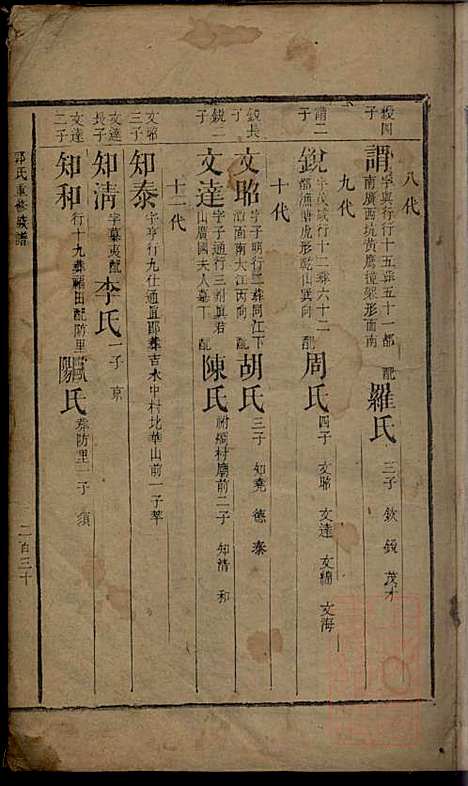 八代
毅四子
謂 字與行行十五葬五十一都南廣西坑黃鷹撞架形面南 配
羅氏 三子 欽 銳 茂才
九代
謂二子
銳 字茂 行十二葬六十二都漁唐虎形乾山巽向 配
周氏 四子 文昭 文達 文繡 文海
十代
銳長子
文昭 字子明行二葬同江下潭面南大江丙向 配
胡氏 三子 知堯 德 泰
銳二子
文達 字子通行三 與君山廣國夫人墓下 配
陳氏 祔綢村廟前二子 知清 和
十一代
文昭三子
知泰 字亨行九仕通直郎葬吉水中村北華山前一子 莘
文達長子
知清 字 夷配
李氏 一子 京
文達二子
知和 行十九葬福田配防里
歐陽氏 葬防里一子 須
郭氏重修族譜
二百三十